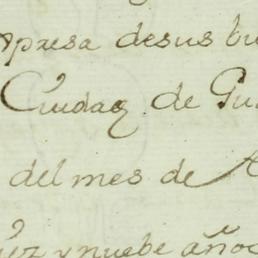 presa desus bu
Ciudad de Gu
del mes de A
iez y nuebe años